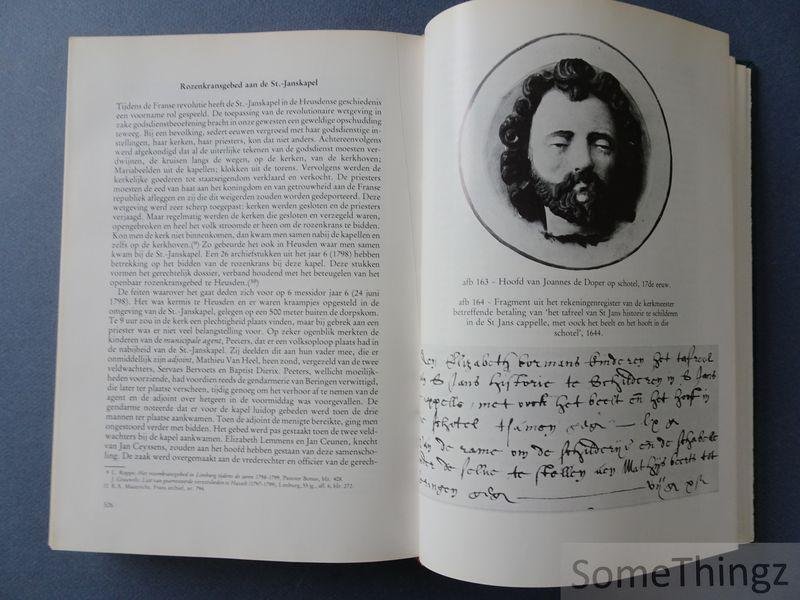 Rozenkransgebed aan de St.-Janskapel
Tijdens de Franse revolutie heeft de St.-Janskapel in de Heusdense geschiedenis
een voorname rol gespeeld. De toepassing van de revolutionaire wetgeving in
zake godsdienstbeoefening bracht in onze gewesten een geweldige opschudding
teweeg. Bij een bevolking, sedert eeuwen vergroeid met haar godsdienstige in-
stellingen, haar kerken, haar priesters, kon dat niet anders. Achtereenvolgens
werd afgekondigd dat al de uiterlijke tekenen van de godsdienst moesten ver-
dwijnen, de kruisen langs de wegen, op de kerken, van de kerkhoven;
Mariabeelden uit de kapellen; klokken uit de torens. Vervolgens werden de
kerkelijke goederen tot staatseigendom verklaard en verkocht. De priesters
moesten de eed van haat aan het koningdom en van getrouwheid aan de Franse
republiek afleggen en zij die dit weigerden zouden worden gedeporteerd. Deze
wetgeving werd zeer scherp toegepast: kerken werden gesloten en de priesters
verjaagd. Maar regelmatig werden de kerken die gesloten en verzegeld waren,
opengebroken en heel het volk stroomde er heen om de rozenkrans te bidden.
Kon men de kerk niet binnenkomen, dan kwam men samen nabij de kapellen en
zelfs op de kerkhoven.(⁹) Zo gebeurde het ook in Heusden waar men samen
kwam bij de St.-Janskapel. Een 26 archiefstukken uit het jaar 6 (1798) hebben
betrekking op het bidden van de rozenkrans bij deze kapel. Deze stukken
vormen het gerechtelijk dossier, verband houdend met het beteugelen van het
openbaar rozenkransgebed te Heusden.(¹⁰)
De feiten waarover het gaat deden zich voor op 6 messidor jaar 6 (24 juni
1798). Het was kermis te Heusden en er waren kraampjes opgesteld in de
omgeving van de St.-Janskapel, gelegen op een 500 meter buiten de dorpskom.
Te 9 uur zou in de kerk een plechtigheid plaats vinden, maar bij gebrek aan een
priester was er niet veel belangstelling voor. Op zeker ogenblik merkten de
kinderen van de municipale agent, Peeters, dat er een volksoploop plaats had
in de nabijheid van de St.-Janskapel. Zij deelden dit aan hun vader mee, die er
onmiddellijk zijn adjoint, Mathieu Van Heel, heen zond, vergezeld van de twee
veldwachters, Servaes Bervoets en Baptist Dierix. Peeters, wellicht moeilijk-
heden voorziende, had voordien reeds de gendarmerie van Beringen verwittigd,
die later ter plaatse verscheen, tijdig genoeg om het verhoor af te nemen van de
agent en de adjoint over hetgeen in de voormiddag was voorgevallen. De
gendarme noteerde dat er voor de kapel luidop gebeden werd toen de drie
mannen ter plaatse aankwamen. Toen de adjoint de menigte bereikte, ging men
ongestoord verder met bidden. Het gebed werd pas gestaakt toen de twee veld-
wachters bij de kapel aankwamen. Elizabeth Lemmens en Jan Ceunen, knecht
van Jan Ceyssens, zouden aan het hoofd hebben gestaan van deze samenscho-
ling. De zaak werd overgemaakt aan de vrederechter en officier van de gerech-
526
afb 163 - Hoofd van Joannes de Doper op schotel, 17de eeuw.
afb 164 - Fragment uit het rekeningenregister van de kerkmeester
betreffende betaling van 'het tafreel van St Jans historie te schilderen
in de St Jans cappelle, met oock het beelt en het hooft in die
schotel', 1644.
Elizabeth kormans kinderen het tafreel
S Jans historie te Schilderen in S Jans
met oock het beelt en het hooft in
SomeThingz